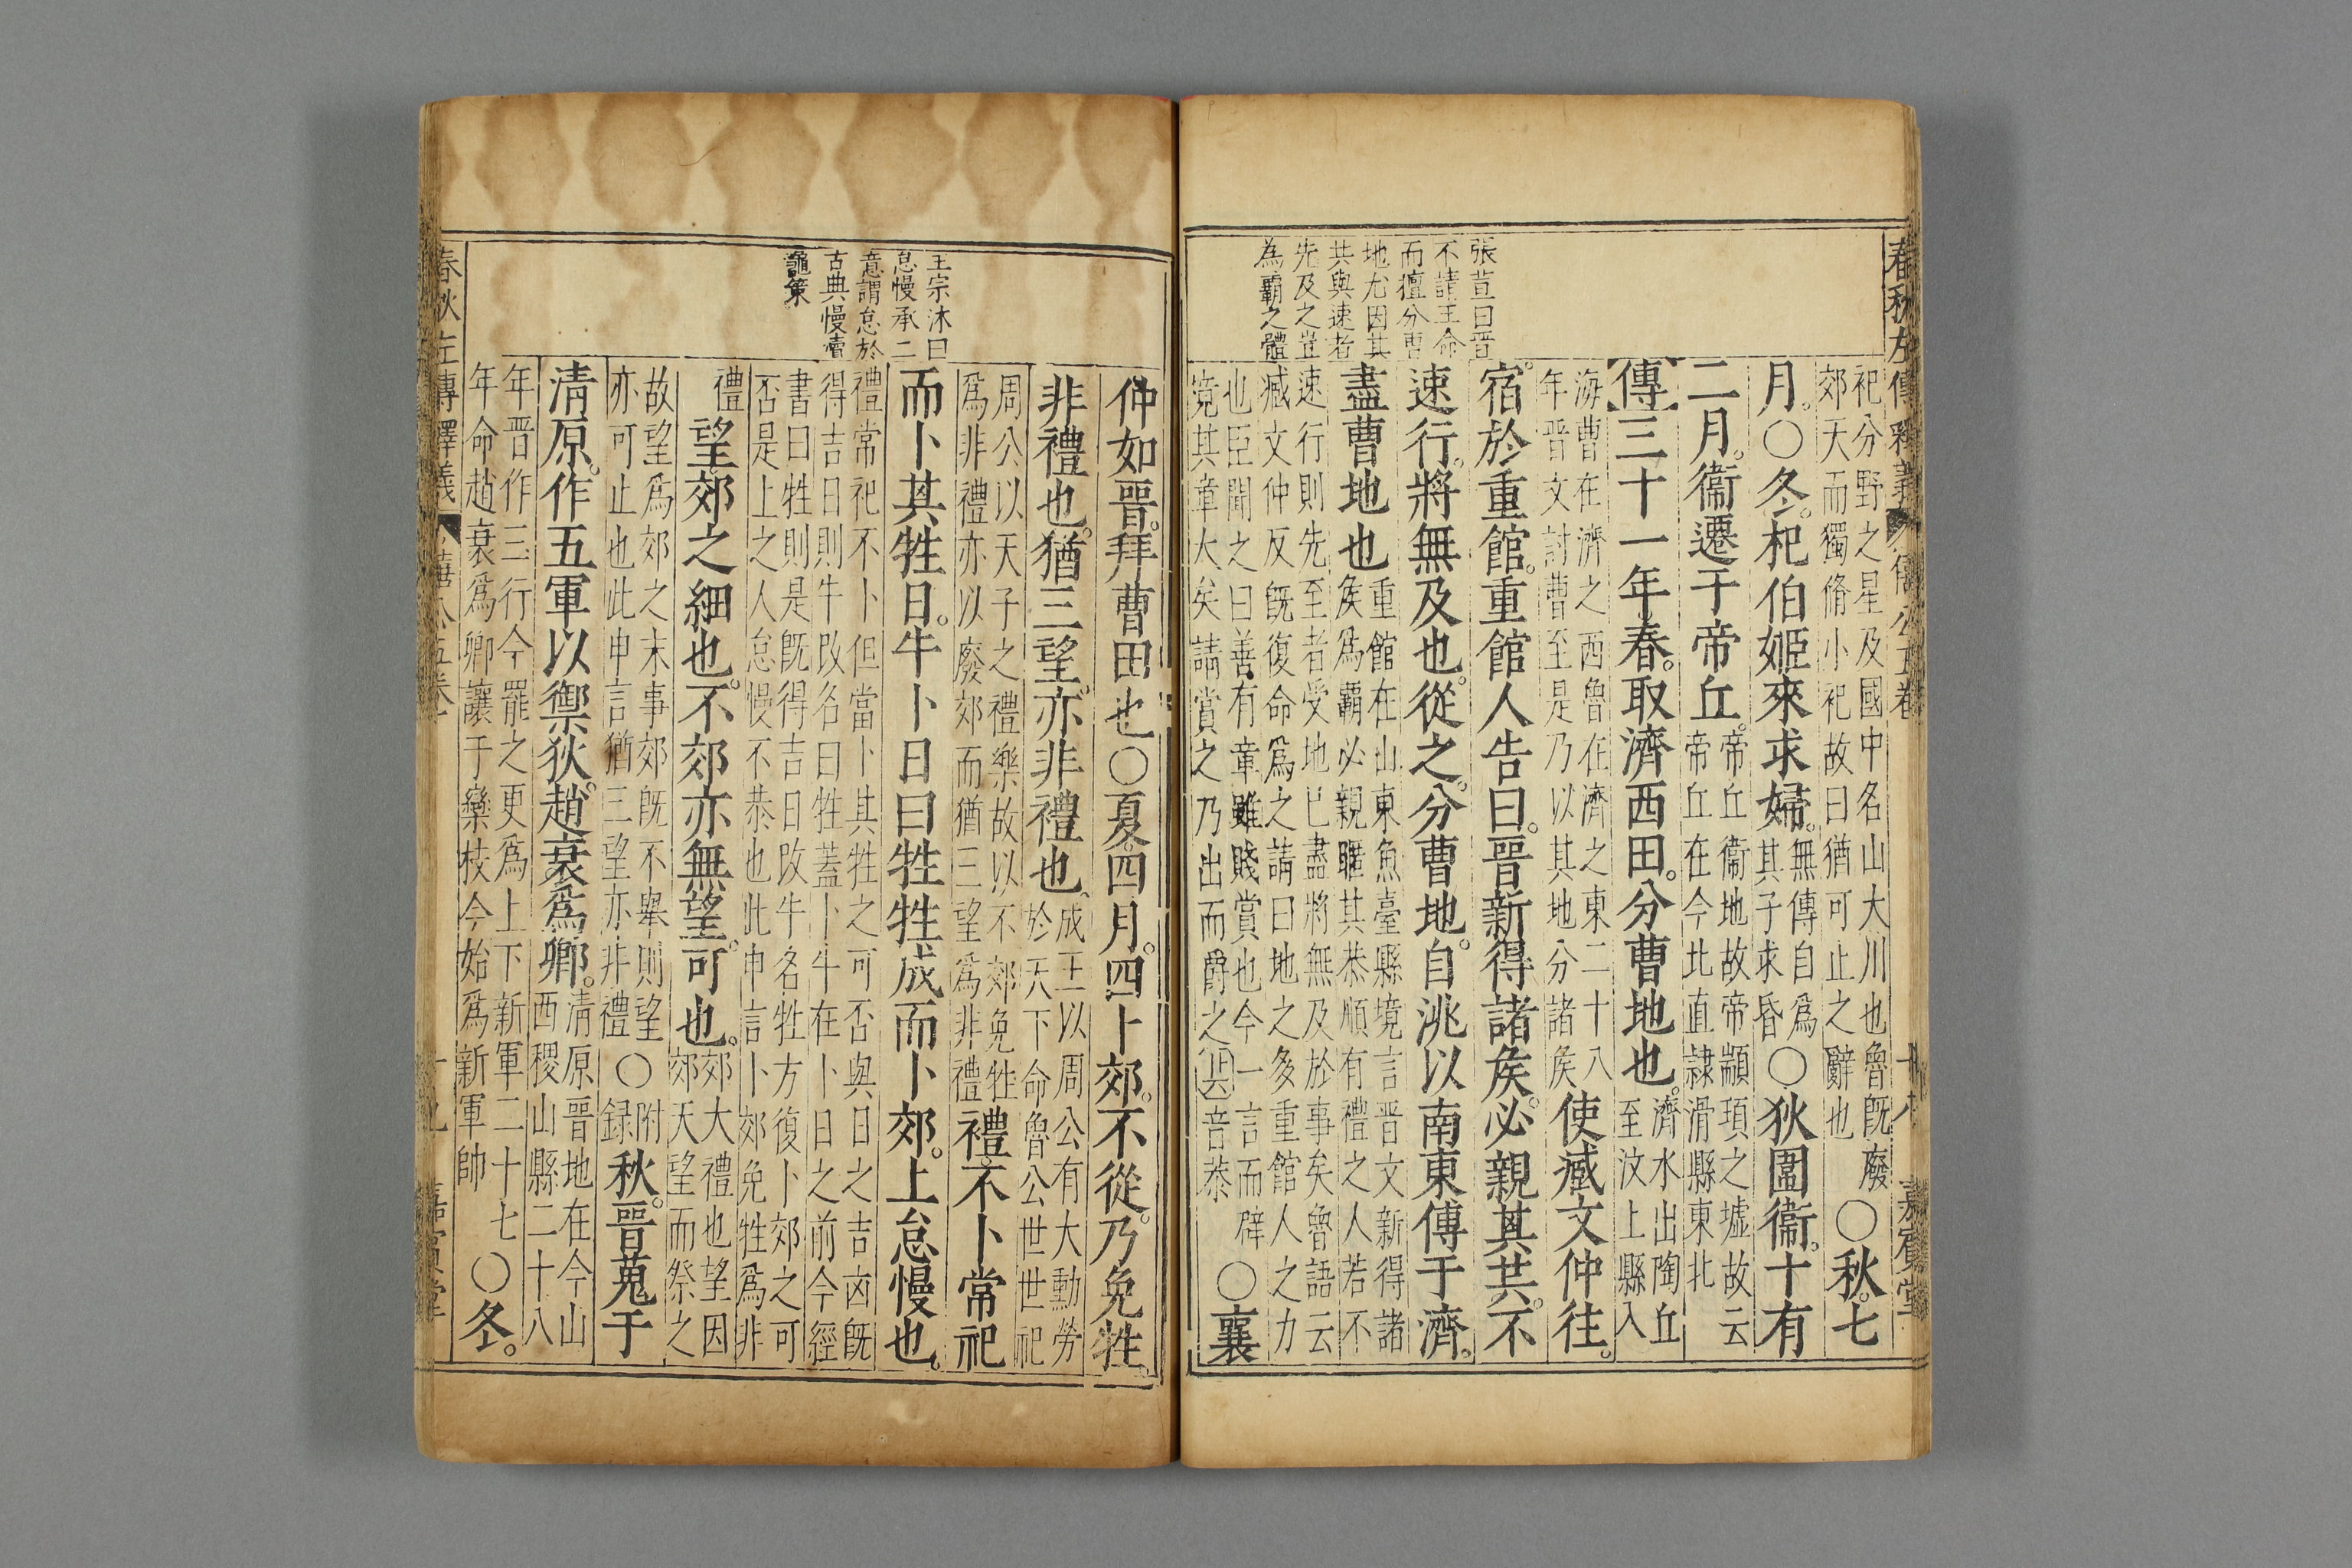 春秋左傳釋義
僖公五卷
十八
嘉賓堂
張萱曰晋
不請王命
而擅分曹
地尤因其
共與速者
先及之豈
為霸之體
祀分野之星及國中名山大川也魯旣廢
郊天而獨脩小祀故曰猶可止之辭也
〇秋。七
月。〇冬。杞伯姬來求婦。
無傳自爲
其子求昏
〇狄圍衞。十有
二月。衞遷于帝丘。
帝丘衞地故帝顓頊之墟故云
帝丘在今北直隷滑縣東北
傳三十一年春。取濟西田。分曹地也。
濟水出陶丘
至汶上縣入
海曹在濟之西魯在濟之東二十八
年晋文討曹至是乃以其地分諸矦
使臧文仲往。
宿於重館。重館人告曰。晋新得諸矦。必親其共。不
速行。將無及也。從之。分曹地。自洮以南東傅于濟。
盡曹地也
重館在山東魚臺縣境言晋文新得諸
矦爲霸必親暱其恭順有禮之人若不
速行則先至者受地已盡將無及於事矣魯語云
臧文仲反旣復命爲之請曰地之多重館人之力
也臣聞之曰善有章雖賤賞也今一言而辟
竟其章大矣請賞之乃出而爵之共音恭
〇襄
仲如晋。拜曹田也〇夏四月。四卜郊。不從。乃免牲。
非禮也。猶三望。亦非禮也。
成王以周公有大勳勞
於天下命魯公世世祀
周公以天子之禮樂故以不郊免牲
爲非禮亦以廢郊而猶三望爲非禮
禮。不卜常祀
而卜其牲日。牛卜日曰牲牲成而卜郊。上怠慢也。
禮常祀不卜但當卜其牲之可否與日之吉凶旣
得吉日則牛改名曰牲蓋卜牛在卜日之前今經
書曰牲則是旣得吉日改牛名牲方復卜郊之可
否是上之人怠慢不恭也此申言卜郊免牲爲非
禮
望。郊之細也。不郊亦無望。可也。
郊大禮也望因
郊天望而祭之
故望爲郊之末事郊旣不舉則望
亦可止也此申言猶三望亦非禮
〇
附
録
秋。晋蒐于
清原。作五軍以禦狄。趙衰爲卿。
清原晋地在今山
西稷山縣二十八
年晋作三行今罷之更爲上下新軍二十七
年命趙衰爲卿讓于欒枝今始爲新軍帥
〇冬。
王宗沐曰
怠慢承二
意謂怠於
古典慢瀆
龜策
春秋左傳釋義
僖公五卷
十九
嘉賓堂